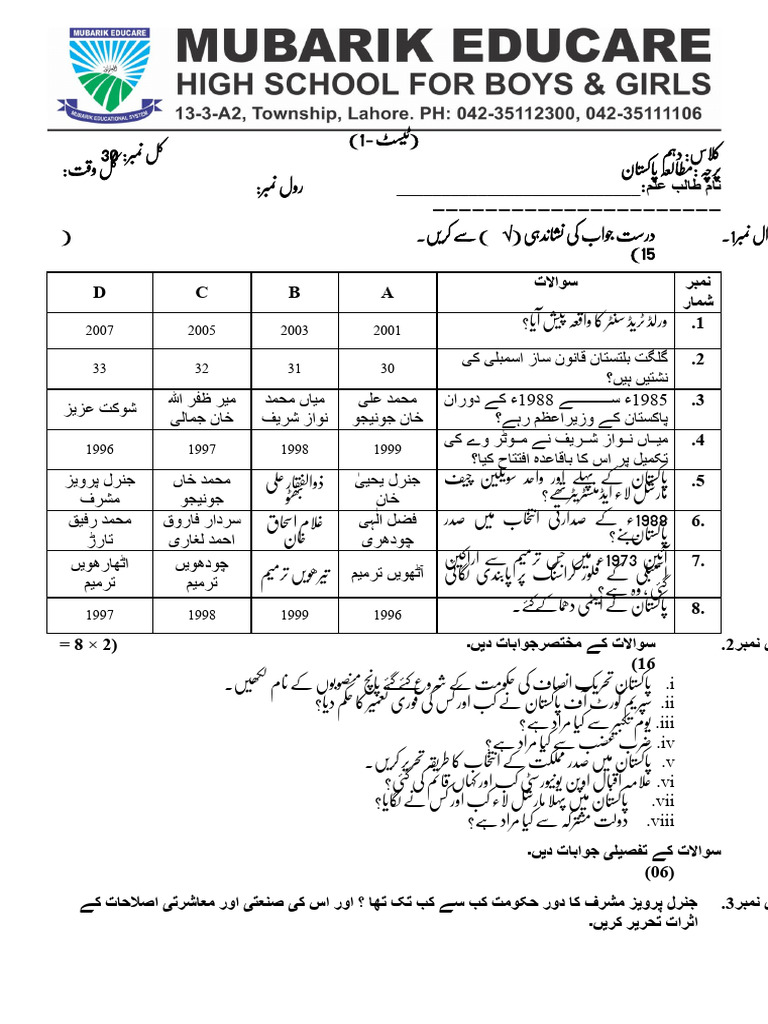 MUBARIK EDUCARE
MUBARIK EDUCATIONAL SYSTEM
MUBARIK EDUCARE
HIGH SCHOOL FOR BOYS & GIRLS
13-3-A2, Township, Lahore. PH: 042-35112300, 042-35111106
(ٹیسٹ -1)
کلاس: دہم کل نمبر: 30
پرچہ: مطالعہ پاکستان کل وقت:
نام طالب علم: ______________________ رول نمبر:
______________________
ال نمبر1۔ درست جواب کی نشاندہی (√) سے کریں۔ (
15)
نمبر شمار سوالات A B C D
1. ورلڈ ٹریڈ سنٹر کا واقعہ پیش آیا؟ 2001 2003 2005 2007
2. گلگت بلتستان قانون ساز اسمبلی کی نشتیں ہیں؟ 30 31 32 33
3. 1985ء سے 1988ء کے دوران پاکستان کے وزیراعظم رہے؟ محمد علی خان جونیجو میاں محمد نواز شریف میر ظفر اللہ خان جمالی شوکت عزیز
4. میاں نواز شریف نے موٹر وے کی تکمیل پر اس کا باقاعدہ افتتاح کیا؟ 1999 1998 1997 1996
5. پاکستان کے پہلے اور واحد سویلین چیف مارشل لاء ایڈمنسٹریٹر تھے؟ جنرل یحییٰ خان ذوالفقار علی بھٹو محمد خاں جونیجو جنرل پرویز مشرف
6. 1988ء کے صدارتی انتخاب میں صدر پاکستان بنے؟ فضل الٰہی چودھری غلام اسحاق خان سردار فاروق احمد لغاری محمد رفیق تارڑ
7. آئین 1973ء میں جس ترمیم سے اراکین اسمبلی کے فلور کراسنگ پر پابندی لگائی گئی، وہ ہے؟ آٹھویں ترمیم تیرھویں ترمیم چودھویں ترمیم اٹھارھویں ترمیم
8. پاکستان نے ایٹمی دھماکے کئے۔ 1996 1999 1998 1997
نمبر2. سوالات کے مختصرجوابات دیں۔ (2 × 8 =
16)
i. پاکستان تحریک انصاف کی حکومت کے شروع کئے گئے پانچ منصوبوں کے نام لکھیں۔
ii. سپریم کورٹ آف پاکستان نے کب اور کس کی فوری تعمیر کا حکم دیا؟
iii. یوم تکبیر سے کیا مراد ہے؟
iv. ضرب عضب سے کیا مراد ہے؟
v. پاکستان میں صدر مملکت کے انتخاب کا طریقہ تحریر کریں۔
vi. علامہ اقبال اوپن یونیورسٹی کب اور کہاں قائم کی گئی؟
vii. پاکستان میں پہلا مارشل لاء کب اور کس نے لگایا؟
viii. دولت مشترکہ سے کیا مراد ہے؟
سوالات کے تفصیلی جوابات دیں۔
(06)
نمبر3. جنرل پرویز مشرف کا دور حکومت کب سے کب تک تھا ؟ اور اس کی صنعتی اور معاشرتی اصلاحات کے
اثرات تحریر کریں۔